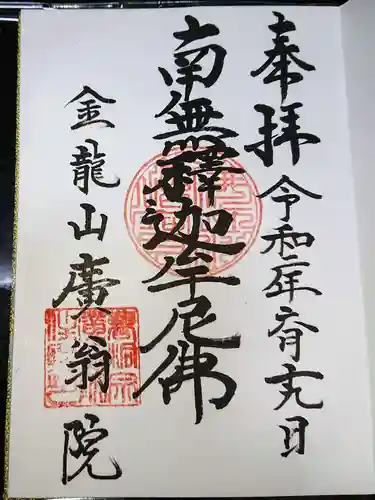 奉拝
令和二年六月十九日
南無釋迦牟尼佛
金龍山廣翁院